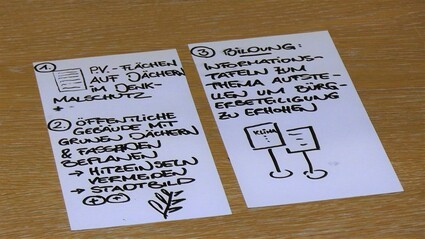 1.
P.V.-FLÄCHEN
AUF DÄCHERN
IM DENK-
MALSCHUTZ
+
2
ÖFFENTLICHE
GEBÄUDE MIT
GRÜNEN DÄCHERN
& FASSADEN
BEPLANEN
→ HITZEINSELN
VERMEIDEN
→ STADTBILD
++
3
BILDUNG:
INFORMATIONS-
TAFELN ZUM
THEMA AUFSTE-
LLEN UM BÜRG-
ERBETEILIGUNG
ZU ERHÖHEN
KLIMA